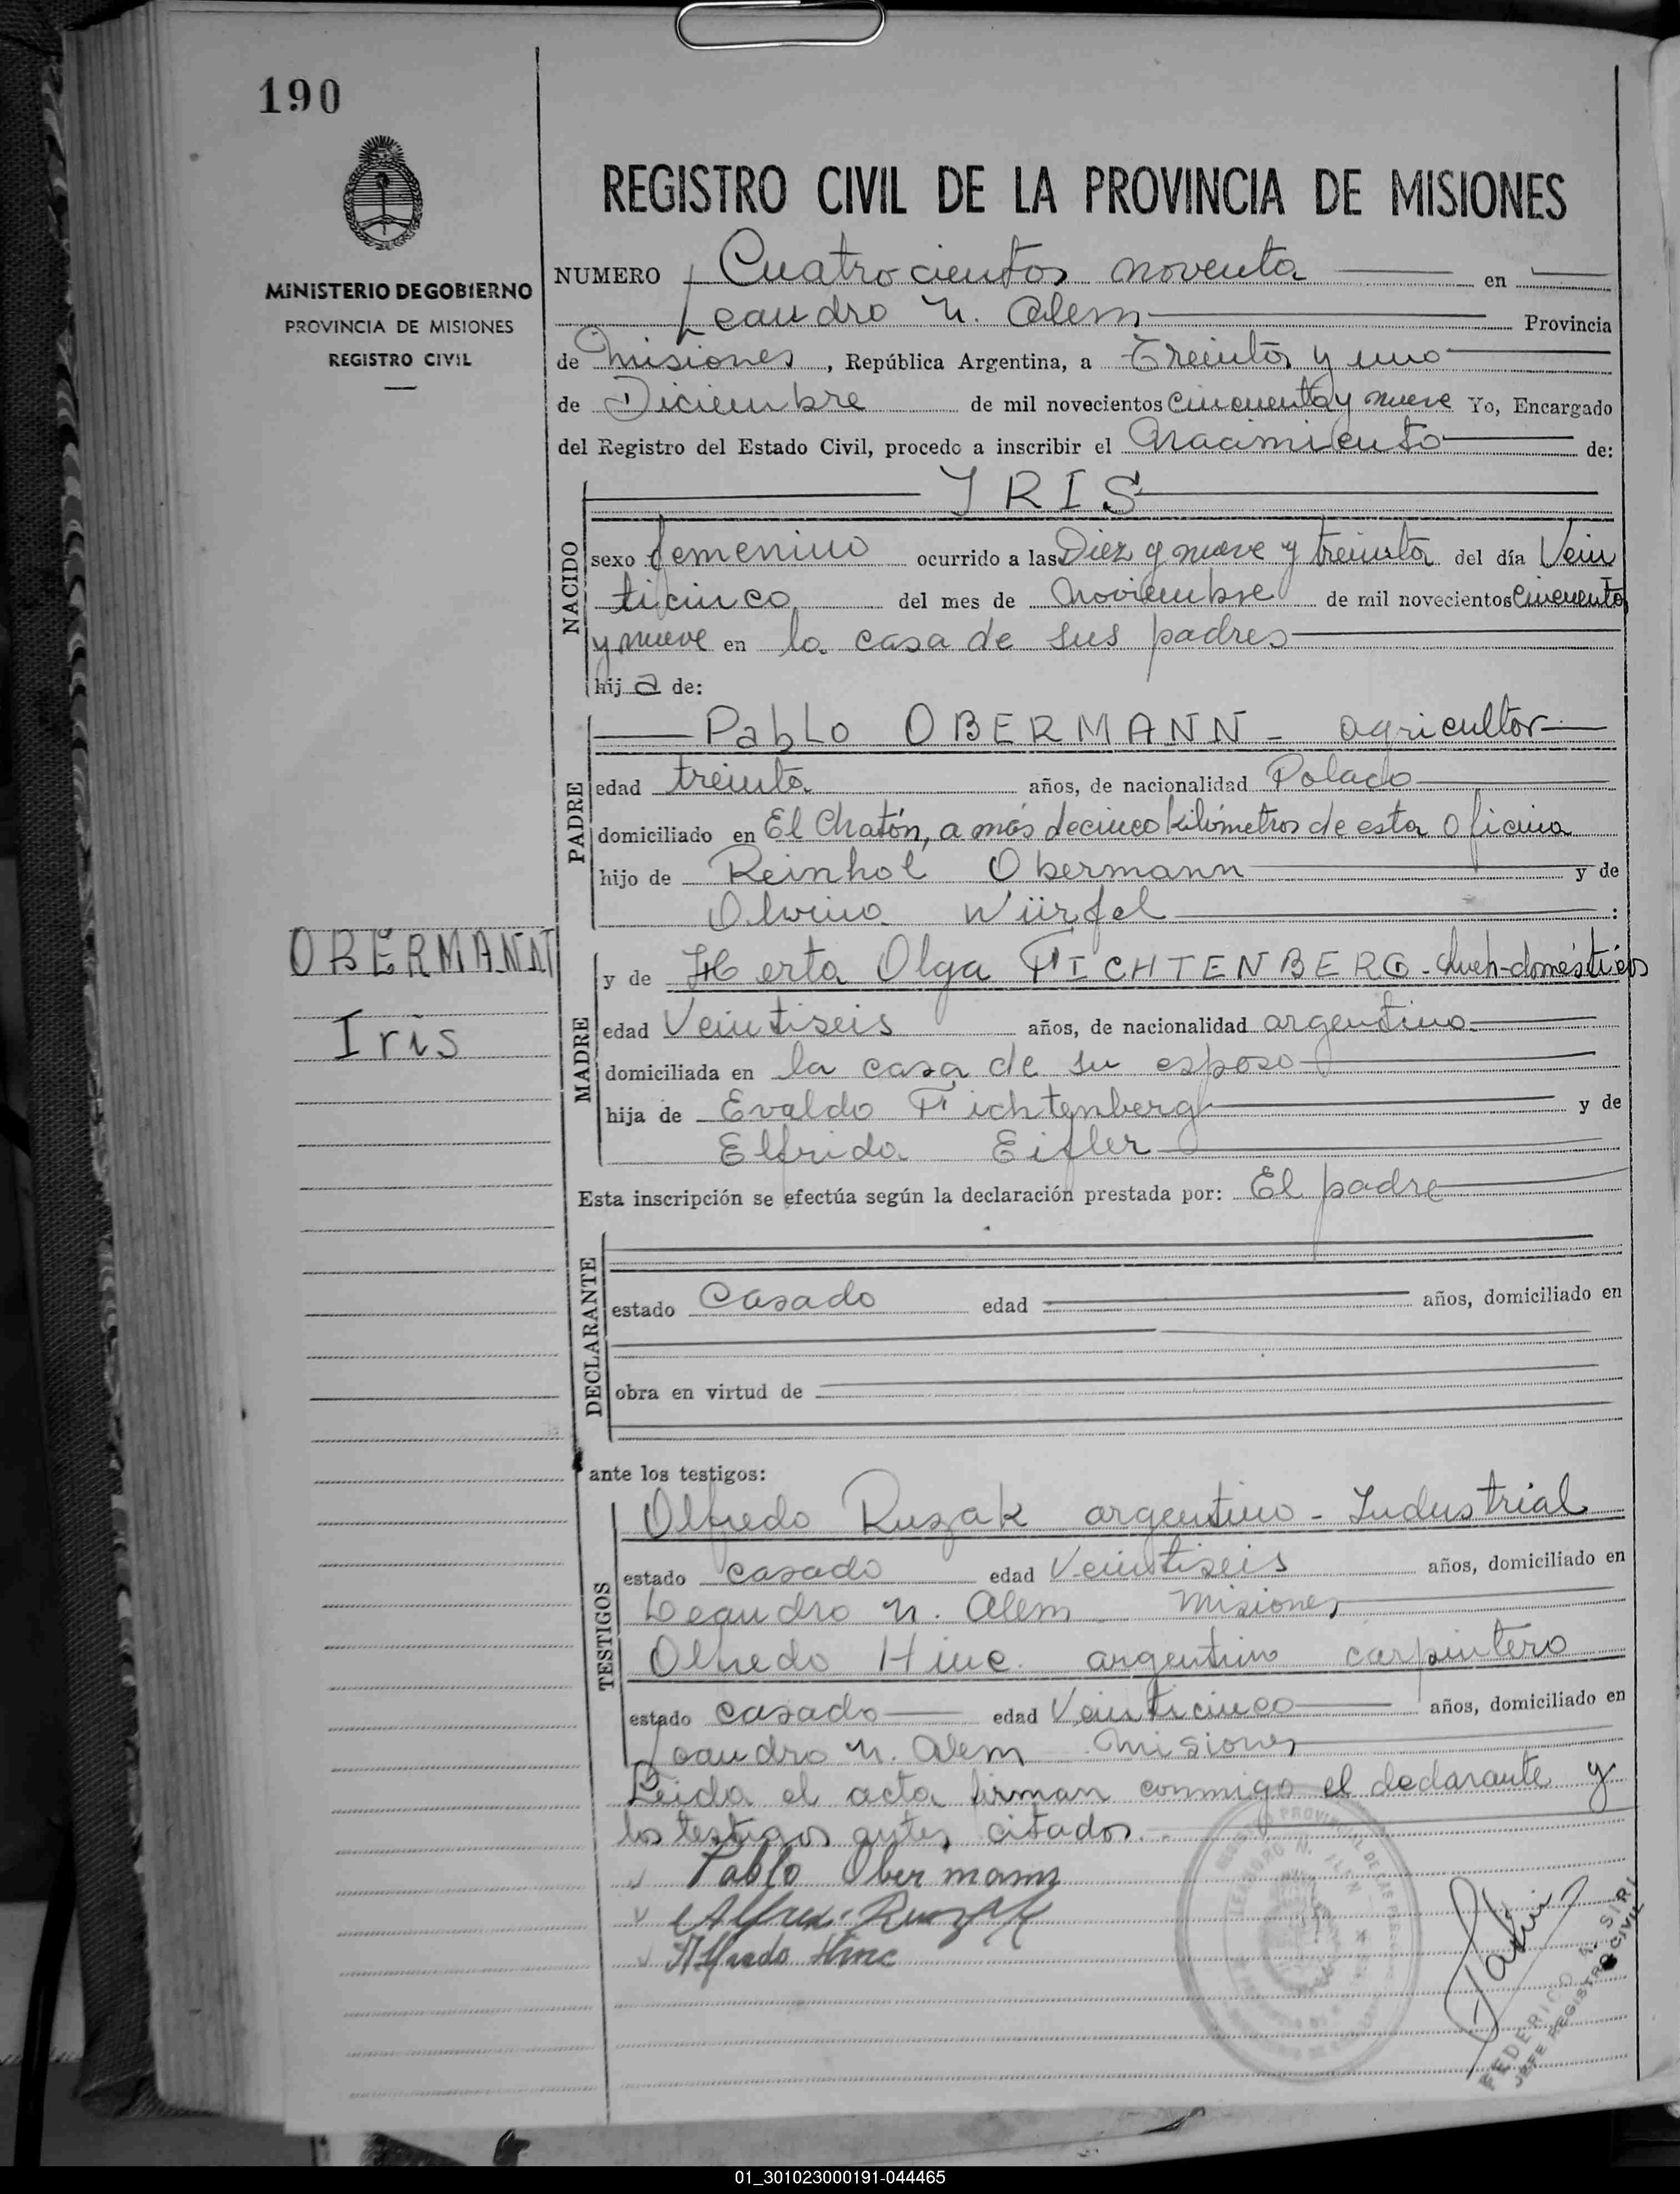 190
REGISTRO CIVIL DE LA PROVINCIA DE MISIONES
MINISTERIO DE GOBIERNO
PROVINCIA DE MISIONES
REGISTRO CIVIL
NUMERO Cuatrocientos noventa en
Leandro N. Alem Provincia
de Misiones, República Argentina, a Treinta y uno
de Diciembre de mil novecientos cincuenta y nueve Yo, Encargado
del Registro del Estado Civil, procedo a inscribir el Nacimiento de:
NACIDO
IRIS
sexo femenino ocurrido a las Diez y nueve y treinta del día Vein
ticinco del mes de Noviembre de mil novecientos cincuenta
y nueve en la casa de sus padres
hij a de:
PADRE
Pablo OBERMANN - agricultor
edad treinta años, de nacionalidad Polaco
domiciliado en El Chatón, a más de cinco kilómetros de esta Oficina
hijo de Reinhol Obermann y de
Olwina Würfel :
OBERMANN
Iris
MADRE
y de Herta Olga FICHTENBERG - Queh-domésticos
edad Veintiseis años, de nacionalidad argentina
domiciliada en la casa de su esposo
hija de Evaldo Fichtenberg y de
Elfrida Eifler
Esta inscripción se efectúa según la declaración prestada por: El padre
DECLARANTE
estado Casado edad años, domiciliado en
obra en virtud de
ante los testigos:
TESTIGOS
Alfredo Ruzak argentino - Industrial
estado casado edad Veintiseis años, domiciliado en
Leandro N. Alem Misiones
Alfredo Hinc argentino carpintero
estado casado edad Veinticinco años, domiciliado en
Leandro N. Alem Misiones
Leida el acta firman conmigo el declarante y
los testigos antes citados.
Pablo Obermann
Alfredo Ruzak
Alfredo Hinc
FEDERICO SIRI
JEFE REGISTRO CIVIL
01_301023000191-044465